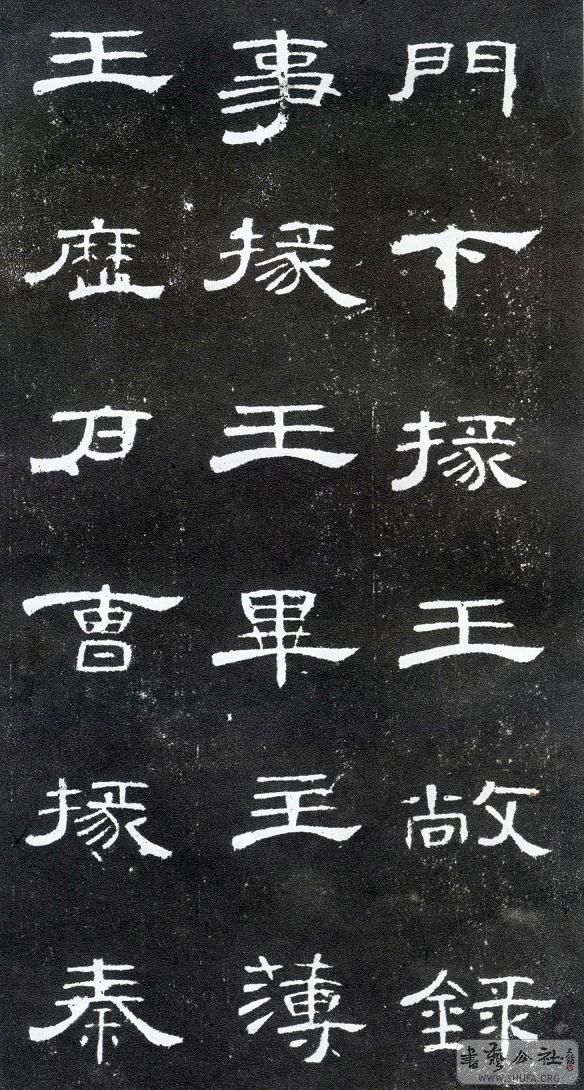 門下掾王敞録
事掾王畢主薄
王歷户曹掾秦
書藝公社
WWW.SHUFA.ORG